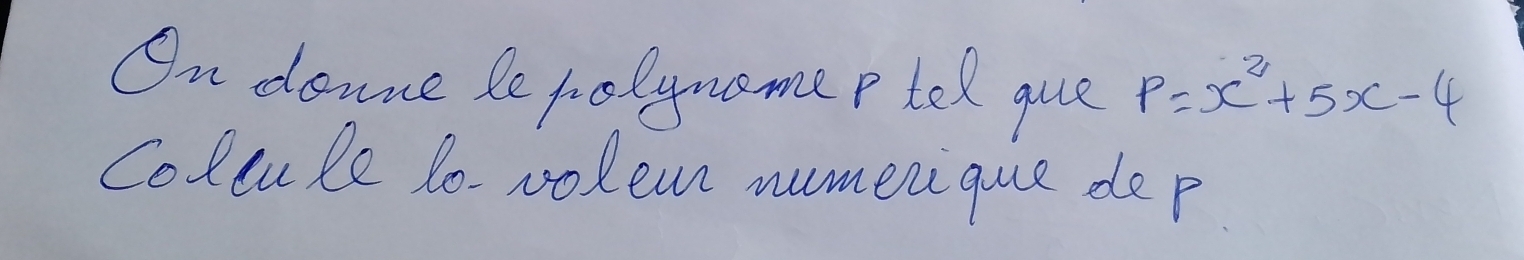 On donne le polynome p tel que P=x²+5x-4
Calcule la valeur numerique de p